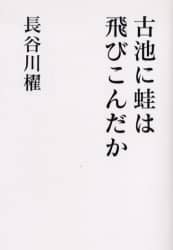 古池に蛙は
飛びこんだか
長谷川櫂